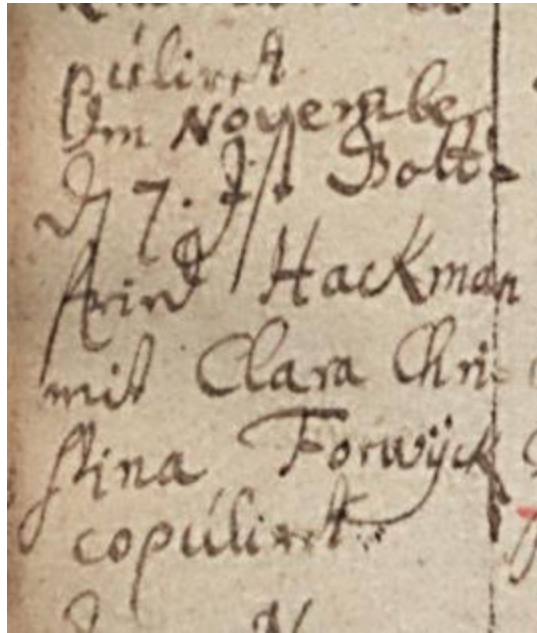 puliret
Im November
d 7. Ist Bolt-
hrind Hackman
mit Clara Chri-
stina Forwijck
copúliret.